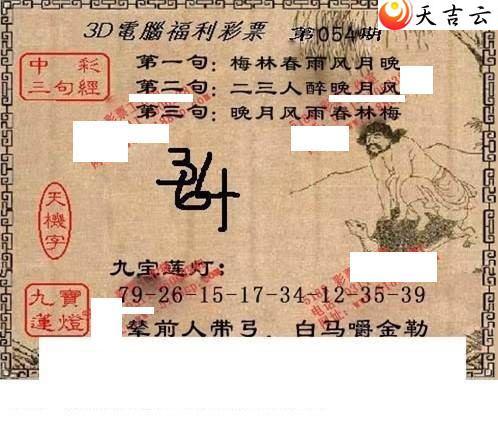 天吉云
3D電腦福利彩票 第054期
中彩
三句經
第一句：梅林春雨风月晚
第二句：二三人醉晚月风
第三句：晚月风雨春林梅
天機字
九宝莲灯：
九寶
蓮燈
79-26-15-17-34-12-35-39
辇前人带弓，白马嚼金勒